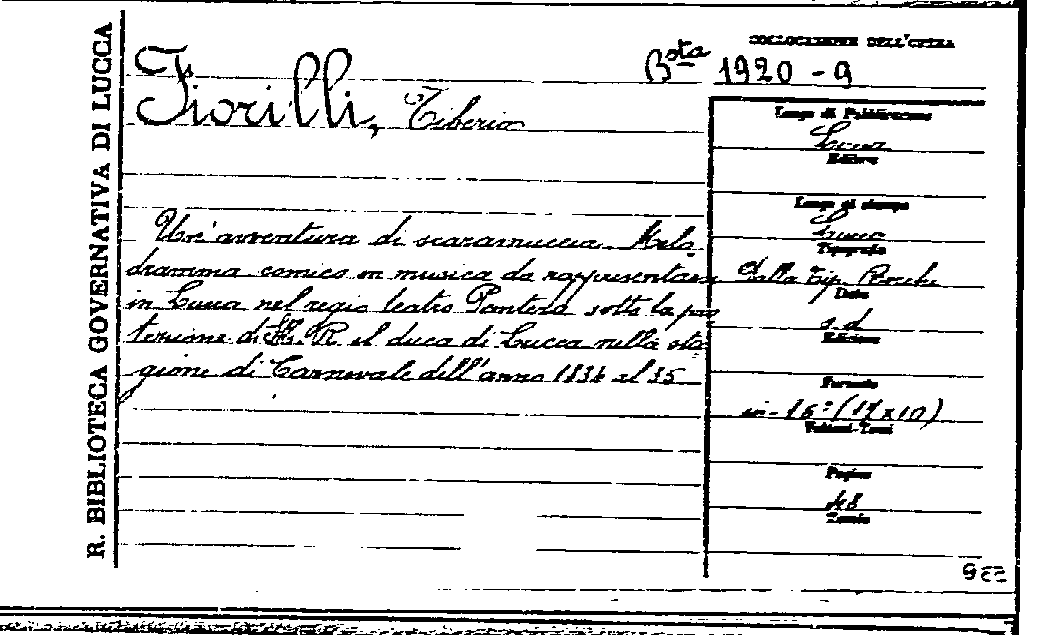 R. BIBLIOTECA GOVERNATIVA DI LUCCA
COLLOCAZIONE DELL'OPERA
Bsta 1920 - 9
Fiorilli, Tiberio
Un'avventura di scaramuccia. Melo-
dramma comico in musica da rappresentarsi
in Lucca nel regio teatro Pantera sotto la pro
tezione di R. il duca di Lucca nella sta
gione di Carnevale dell'anno 1834 al 35
Luogo di Pubblicazione
Lucca
Editore
Luogo di stampa
Lucca
Tipografia
dalla Tip. Rocchi
Data
s. d.
Edizione
Formato
in-16° (17x10)
Volumi-Tomi
Pagine
48